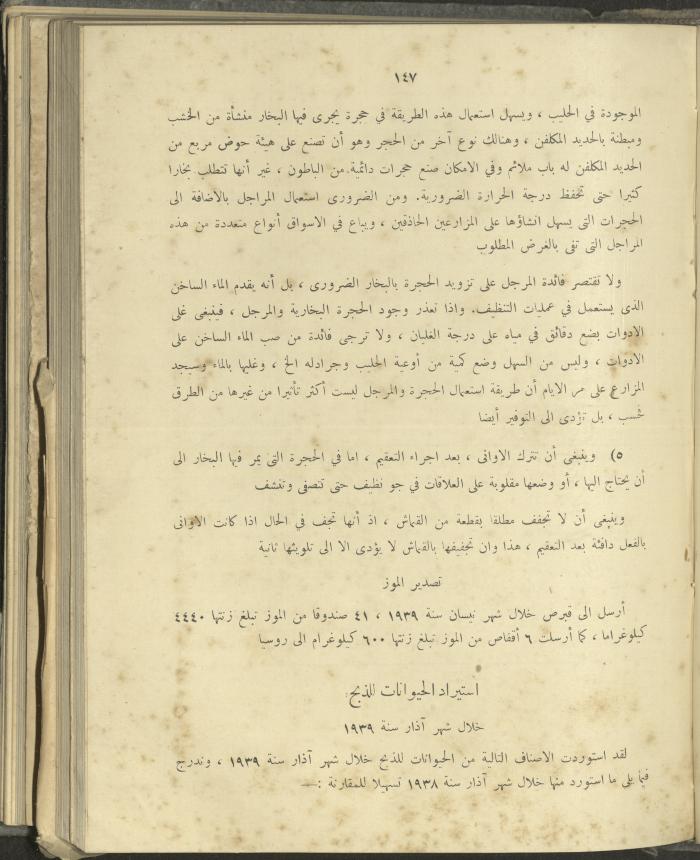 ١٤٧
الموجودة في الحليب ، ويسهل استعمال هذه الطريقة في حجرة يجرى فيها البخار منشأة من الخشب
ومبطنة بالحديد المكلفن ، وهنالك نوع آخر من الحجر وهو أن تصنع على هيئة حوض مربع من
الحديد المكلفن له باب ملائم وفي الامكان صنع حجرات دائمية من الباطون ، غير أنها تتطلب بخارا
كثيرا حتى تحفظ درجة الحرارة الضرورية. ومن الضرورى استعمال المراجل بالاضافة الى
الحجرات التى يسهل انشاؤها على المزارعين الحاذقين ، ويباع في الاسواق أنواع متعددة من هذه
المراجل التى تفى بالغرض المطلوب
ولا تقتصر فائدة المرجل على تزويد الحجرة بالبخار الضرورى ، بل أنه يقدم الماء الساخن
الذى يستعمل في عمليات التنظيف. واذا تعذر وجود الحجرة البخارية والمرجل ، فينبغى غلى
الادوات بضع دقائق في مياه على درجة الغليان ، ولا ترجى فائدة من صب الماء الساخن على
الادوات ، وليس من السهل وضع كمية من أوعية الحليب وجرادله الخ ، وغليها بالماء وسيجد
المزارع على مر الايام أن طريقة استعمال الحجرة والمرجل ليست أكثر تأثيرا من غيرها من الطرق
فحسب ، بل تؤدى الى التوفير أيضا
٥) وينبغى أن تترك الاوانى ، بعد اجراء التعقيم ، اما في الحجرة التى يمر فيها البخار الى
أن يحتاج اليها ، أو وضعها مقلوبة على العلاقات في جو نظيف حتى تتصفى وتنشف
وينبغى أن لا تجفف مطلقا بقطعة من القماش ، اذ أنها تجف في الحال اذا كانت الاوانى
بالفعل دافئة بعد التعقيم ، هذا وان تجفيفها بالقماش لا يؤدى الا الى تلويثها ثانية
تصدير الموز
أرسل الى قبرص خلال شهر نيسان سنة ١٩٣٩ ، ٤١ صندوقا من الموز تبلغ زنتها ٤٤٤٠
كيلوغراما ، كما أرسلت ٦ أقفاص من الموز تبلغ زنتها ٦٠٠ كيلوغرام الى روسيا
استيراد الحيوانات للذبح
خلال شهر آذار سنة ١٩٣٩
لقد استوردت الاصناف التالية من الحيوانات للذبح خلال شهر آذار سنة ١٩٣٩ ، وندرج
فيما يلى ما استورد منها خلال شهر آذار سنة ١٩٣٨ تسهيلا للمقارنة :—